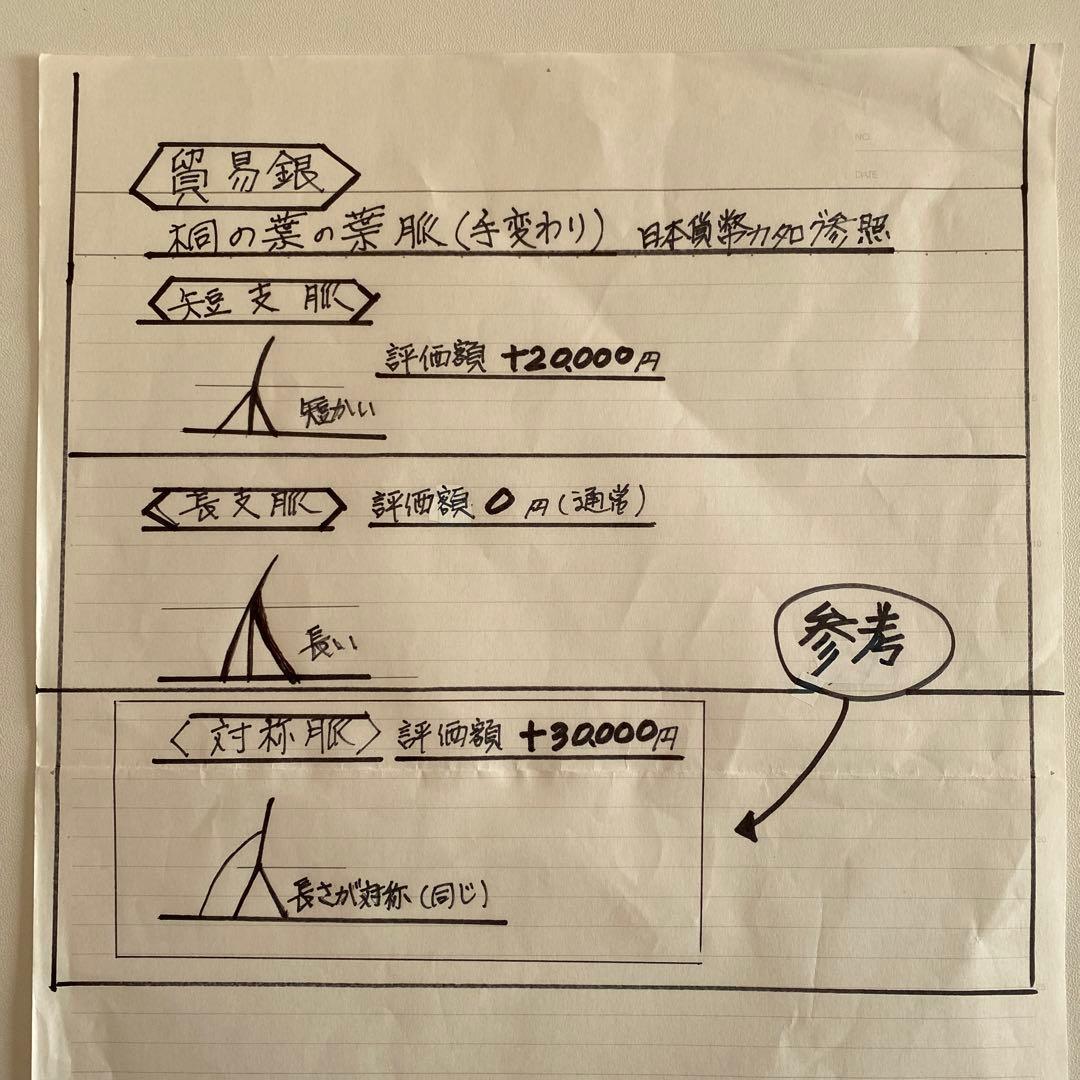 貿易銀
桐の葉の葉脈(手変わり) 日本貨幣カタログ参照
短支脈
評価額 +20,000円
短かい
長支脈 評価額 0円(通常)
長い
参考
対称脈 評価額 +30,000円
長さが対称(同じ)
NO.
DATE